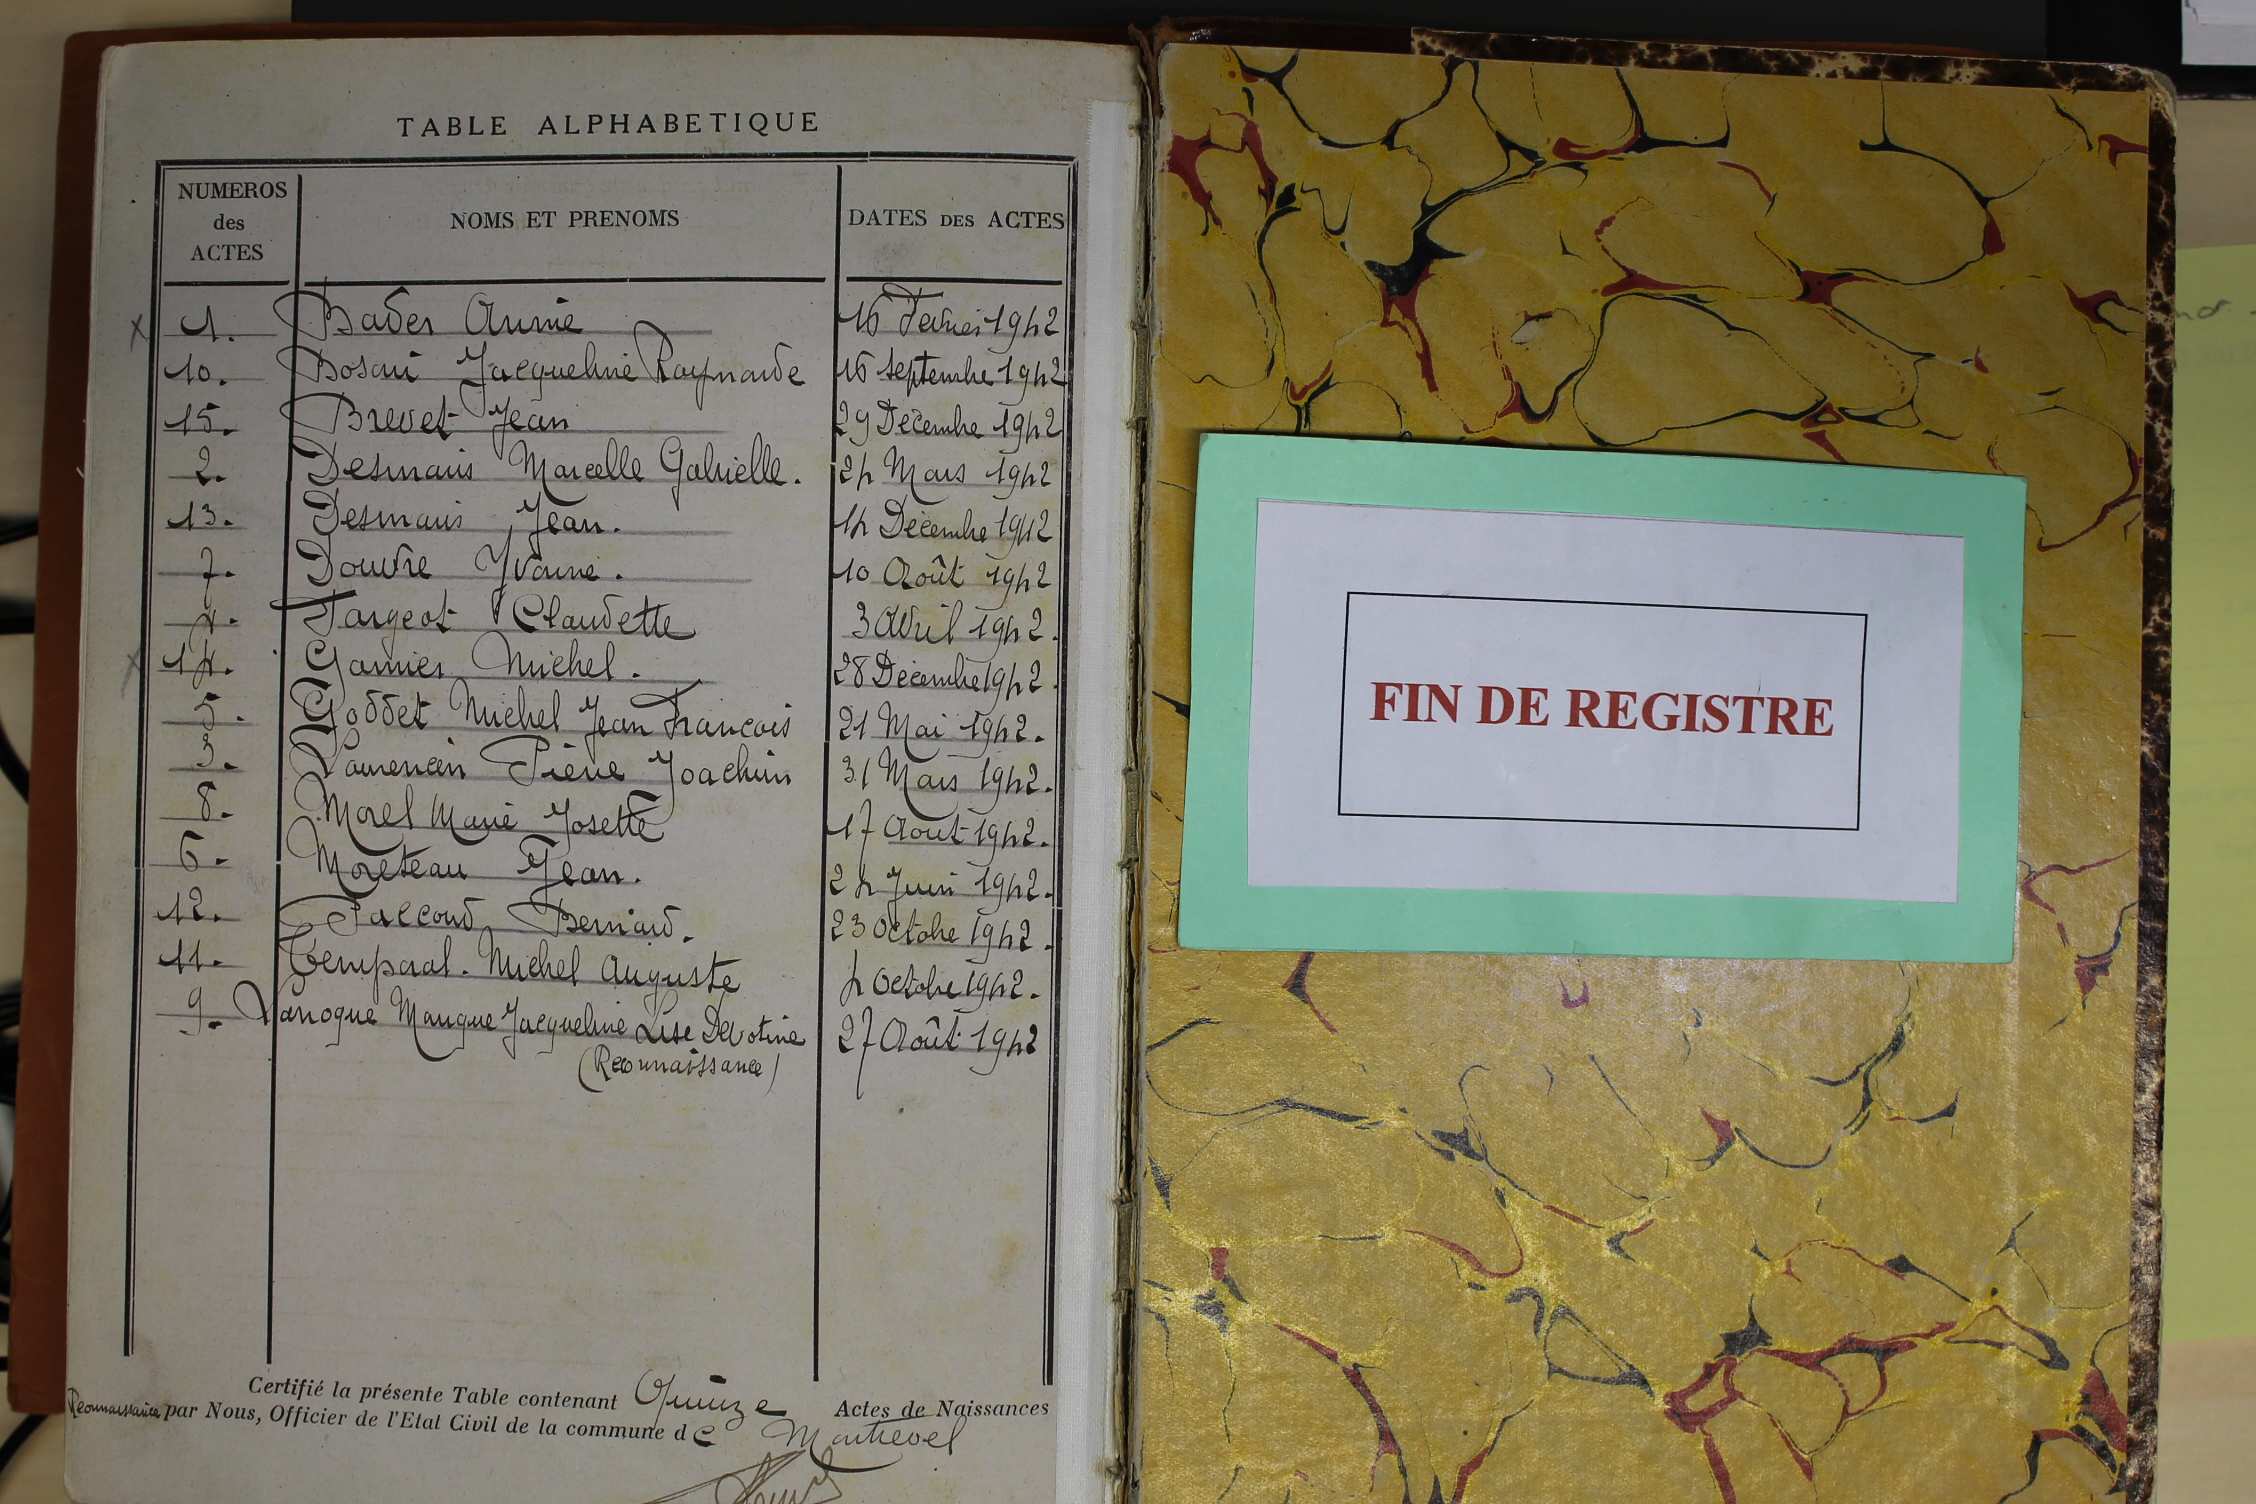 TABLE ALPHABETIQUE
NUMEROS des ACTES
NOMS ET PRENOMS
DATES DES ACTES
1. Bader Annie 16 Février 1942
10. Bosani Jacqueline Raymonde 16 septembre 1942
15. Brevet Jean 29 Décembre 1942
2. Desmaris Marcelle Gabrielle. 24 Mars 1942
13. Desmaris Jean. 14 Décembre 1942
7. Douvre Yvonne. 10 Août 1942
4. Fargeot Claudette 3 Avril 1942.
14. Garnier Michel. 28 Décembre 1942.
5. Goddet Michel Jean François 21 Mai 1942.
3. Laurencin Pierre Joachim 31 Mars 1942.
8. Morel Marie Josette 17 Août 1942.
6. Moreteau Jean. 24 Juin 1942.
12. Paccoud Bernard. 23 Octobre 1942.
11. Temporal. Michel Auguste 4 Octobre 1942.
9. Vanogue Jacqueline Lise Devotine 27 Août 1942
(Reconnaissance)
Certifié la présente Table contenant Quinze Actes de Naissances
Reconnaissance par Nous, Officier de l'Etat Civil de la commune de Montrevel
FIN DE REGISTRE